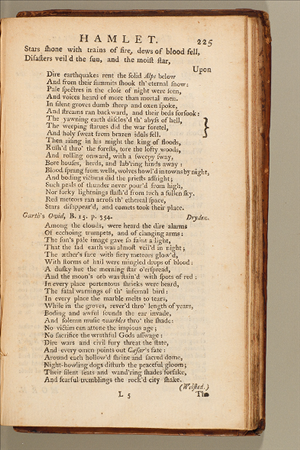 HAMLET. 225
Stars ſhone with trains of fire, dews of blood fell,
Diſaſters veil'd the ſun, and the moiſt ſtar,
Upon
Dire earthquakes rent the ſolid Alps below
And from their ſummits ſhook th' eternal ſnow:
Pale ſpectres in the cloſe of night were ſeen,
And voices heard of more than mortal men.
In ſilent groves dumb ſheep and oxen ſpoke,
And ſtreams ran backward, and their beds forſook:
The yawning earth diſclos'd th' abyſs of hell,
The weeping ſtatues did the war foretel,
And holy ſweat from brazen idols fell.
Then riſing in his might the king of floods,
Ruſh'd thro' the foreſts, tore the lofty woods,
And rolling onward, with a ſweepy ſway,
Bore houſes, herds, and lab'ring hinds away:
Blood ſprang from wells, wolves howl'd in towns by night,
And boding victims did the prieſts affright;
Such peals of thunder never pour'd from high,
Nor forky lightnings flaſh'd from ſuch a ſullen ſky.
Red meteors ran acroſs th' ethereal ſpace,
Stars diſappear'd, and comets took their place.
Garth's Ovid, B. 15. p. 354. Dryden.
Among the clouds, were heard the dire alarms
Of echoing trumpets, and of clanging arms:
The ſun's pale image gave ſo faint a light,
That the ſad earth was almoſt veil'd in night;
The æther's face with fiery meteors glow'd,
With ſtorms of hail were mingled drops of blood:
A duſky hue the morning ſtar o'erſpread,
And the moon's orb was ſtain'd with ſpots of red:
In every place portentous ſhrieks were heard,
The fatal warnings of th' infernal bird:
In every place the marble melts to tears,
While in the groves, rever'd thro' length of years,
Boding and awful ſounds the ear invade,
And ſolemn muſic warbles thro' the ſhade:
No victim can atone the impious age;
No ſacrifice the wrathful Gods aſſwage;
Dire wars and civil fury threat the ſtate,
And every omen points out Cæſar's fate:
Around each hollow'd ſhrine and ſacred dome,
Night-howling dogs diſturb the peaceful gloom;
Their ſilent ſeats and wand'ring ſhades forſake,
And fearful tremblings the rock'd city ſhake.
(Welſted.)
L 5 The